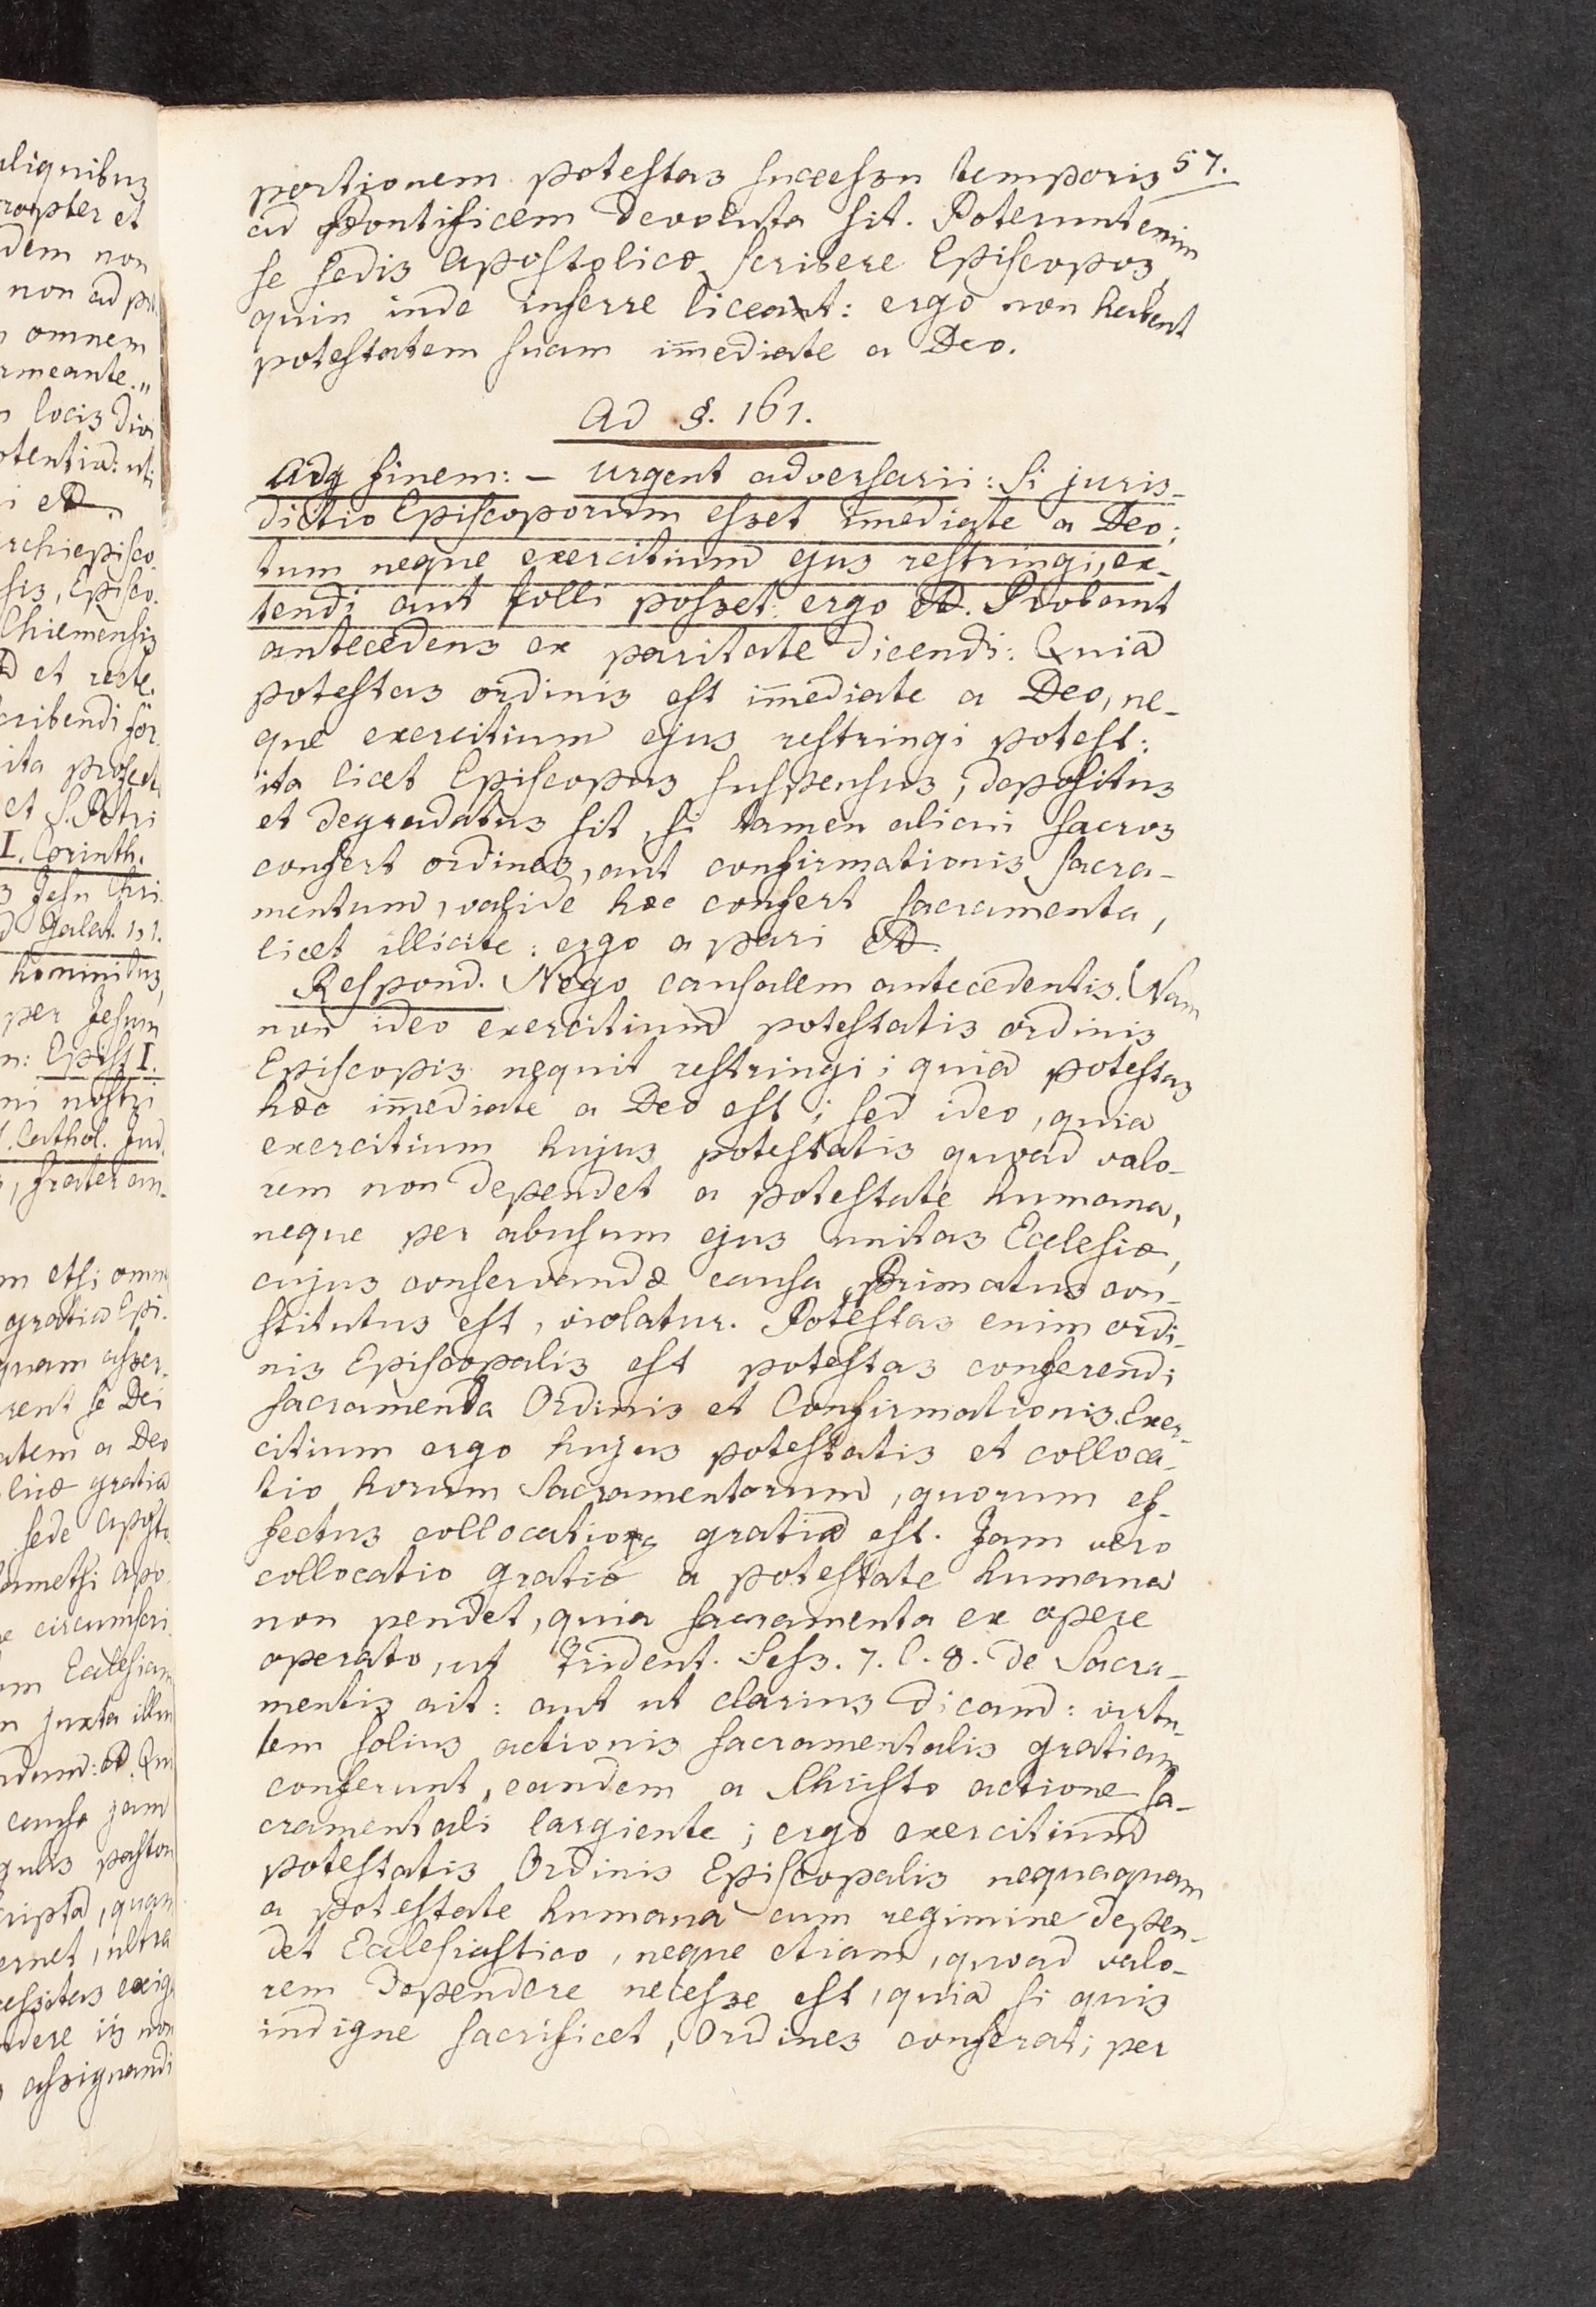 aliquibus
propter et
dem non
non ad
omnem
rmeante."
locis
otentia:
rchiepisco-
sis, Episco-
Chiemensis
et reste.
cribendi
ita
et S. Petri
I. Corinth.
Jesu Chri
Galat. 1, 1.
hominibus,
per Jesum
n: Epist I.
ni nostri
Cathol. Jud.
, frater
m etsi omn
gratia Epi-
quam asser-
rent se Dei
atem a Deo
gratia
sede Aposto
tametsi Apo
circumscri
Ecclesiam
juxta illu
causa jam
quis pastor
cripta, quam
ernet, ultra
essitas exig
dere iis non
assignandi
57.
portionem potestas successu temporis
ad Pontificem devoluta sit. Poterunt enim
se sedis Apostolicæ scribere Episcopos,
quin inde inferre liceat: ergo non habent
potestatem suam im̄ediate a Deo.
Ad §. 161.
Adq finem: – Urgent adversarii: Si juris-
dictio Episcoporum esset im̄ediate a Deo;
tum neque exercitium ejus restringi, ex-
tendi aut tolli posset: ergo etc. Probant
antecedens ex paritate dicendi: Quia
potestas ordinis est im̄ediate a Deo, ne-
que exercitium ejus restringi potest:
ita licet Episcopus suspensus, depositus
et degradatus sit, si tamen alicui sacros
confert ordines, aut confirmationis sacra-
mentum, valide hæc confert sacramenta,
licet illicite: ergo a pari etc.
Respond. Nego causalem antecedentis. Nam
non ideo exercitium potestatis ordinis
Episcopis nequit restringi; quia potestas
hæc im̄ediate a Deo est; sed ideo, quia
exercitium hujus potestatis quoad valo-
rem non dependet a potestate humana,
neque per abusum ejus unitas Ecclesiæ,
cujus conservandæ causa Primatus con-
stitutus est, violatur. Potestas enim ordi-
nis Episcopalis est potestas conferendi
sacramenta Ordinis et Confirmationis. Exer-
citium ergo hujus potestatis et colloca-
tio horum Sacramentorum, quorum ef-
fectus collocatio gratiæ est. Jam vero
collocatio gratiæ a potestate humana
non pendet, quia sacramenta ex opere
operato, ut Trident. Sess. 7. C. 8. de Sacra-
mentis ait: aut ut clarius dicam: virtu-
tem solius actionis sacramentalis gratiam
conferunt, eandem a Christo actione sa-
cramentali largiente; ergo exercitium
potestatis Ordinis Episcopalis nequaquam
a potestate humana cum regimine depen-
det Ecclesiastico, neque etiam, quoad valo-
rem dependere necesse est, quia si quis
indigne sacrificet, Ordines conferat; per